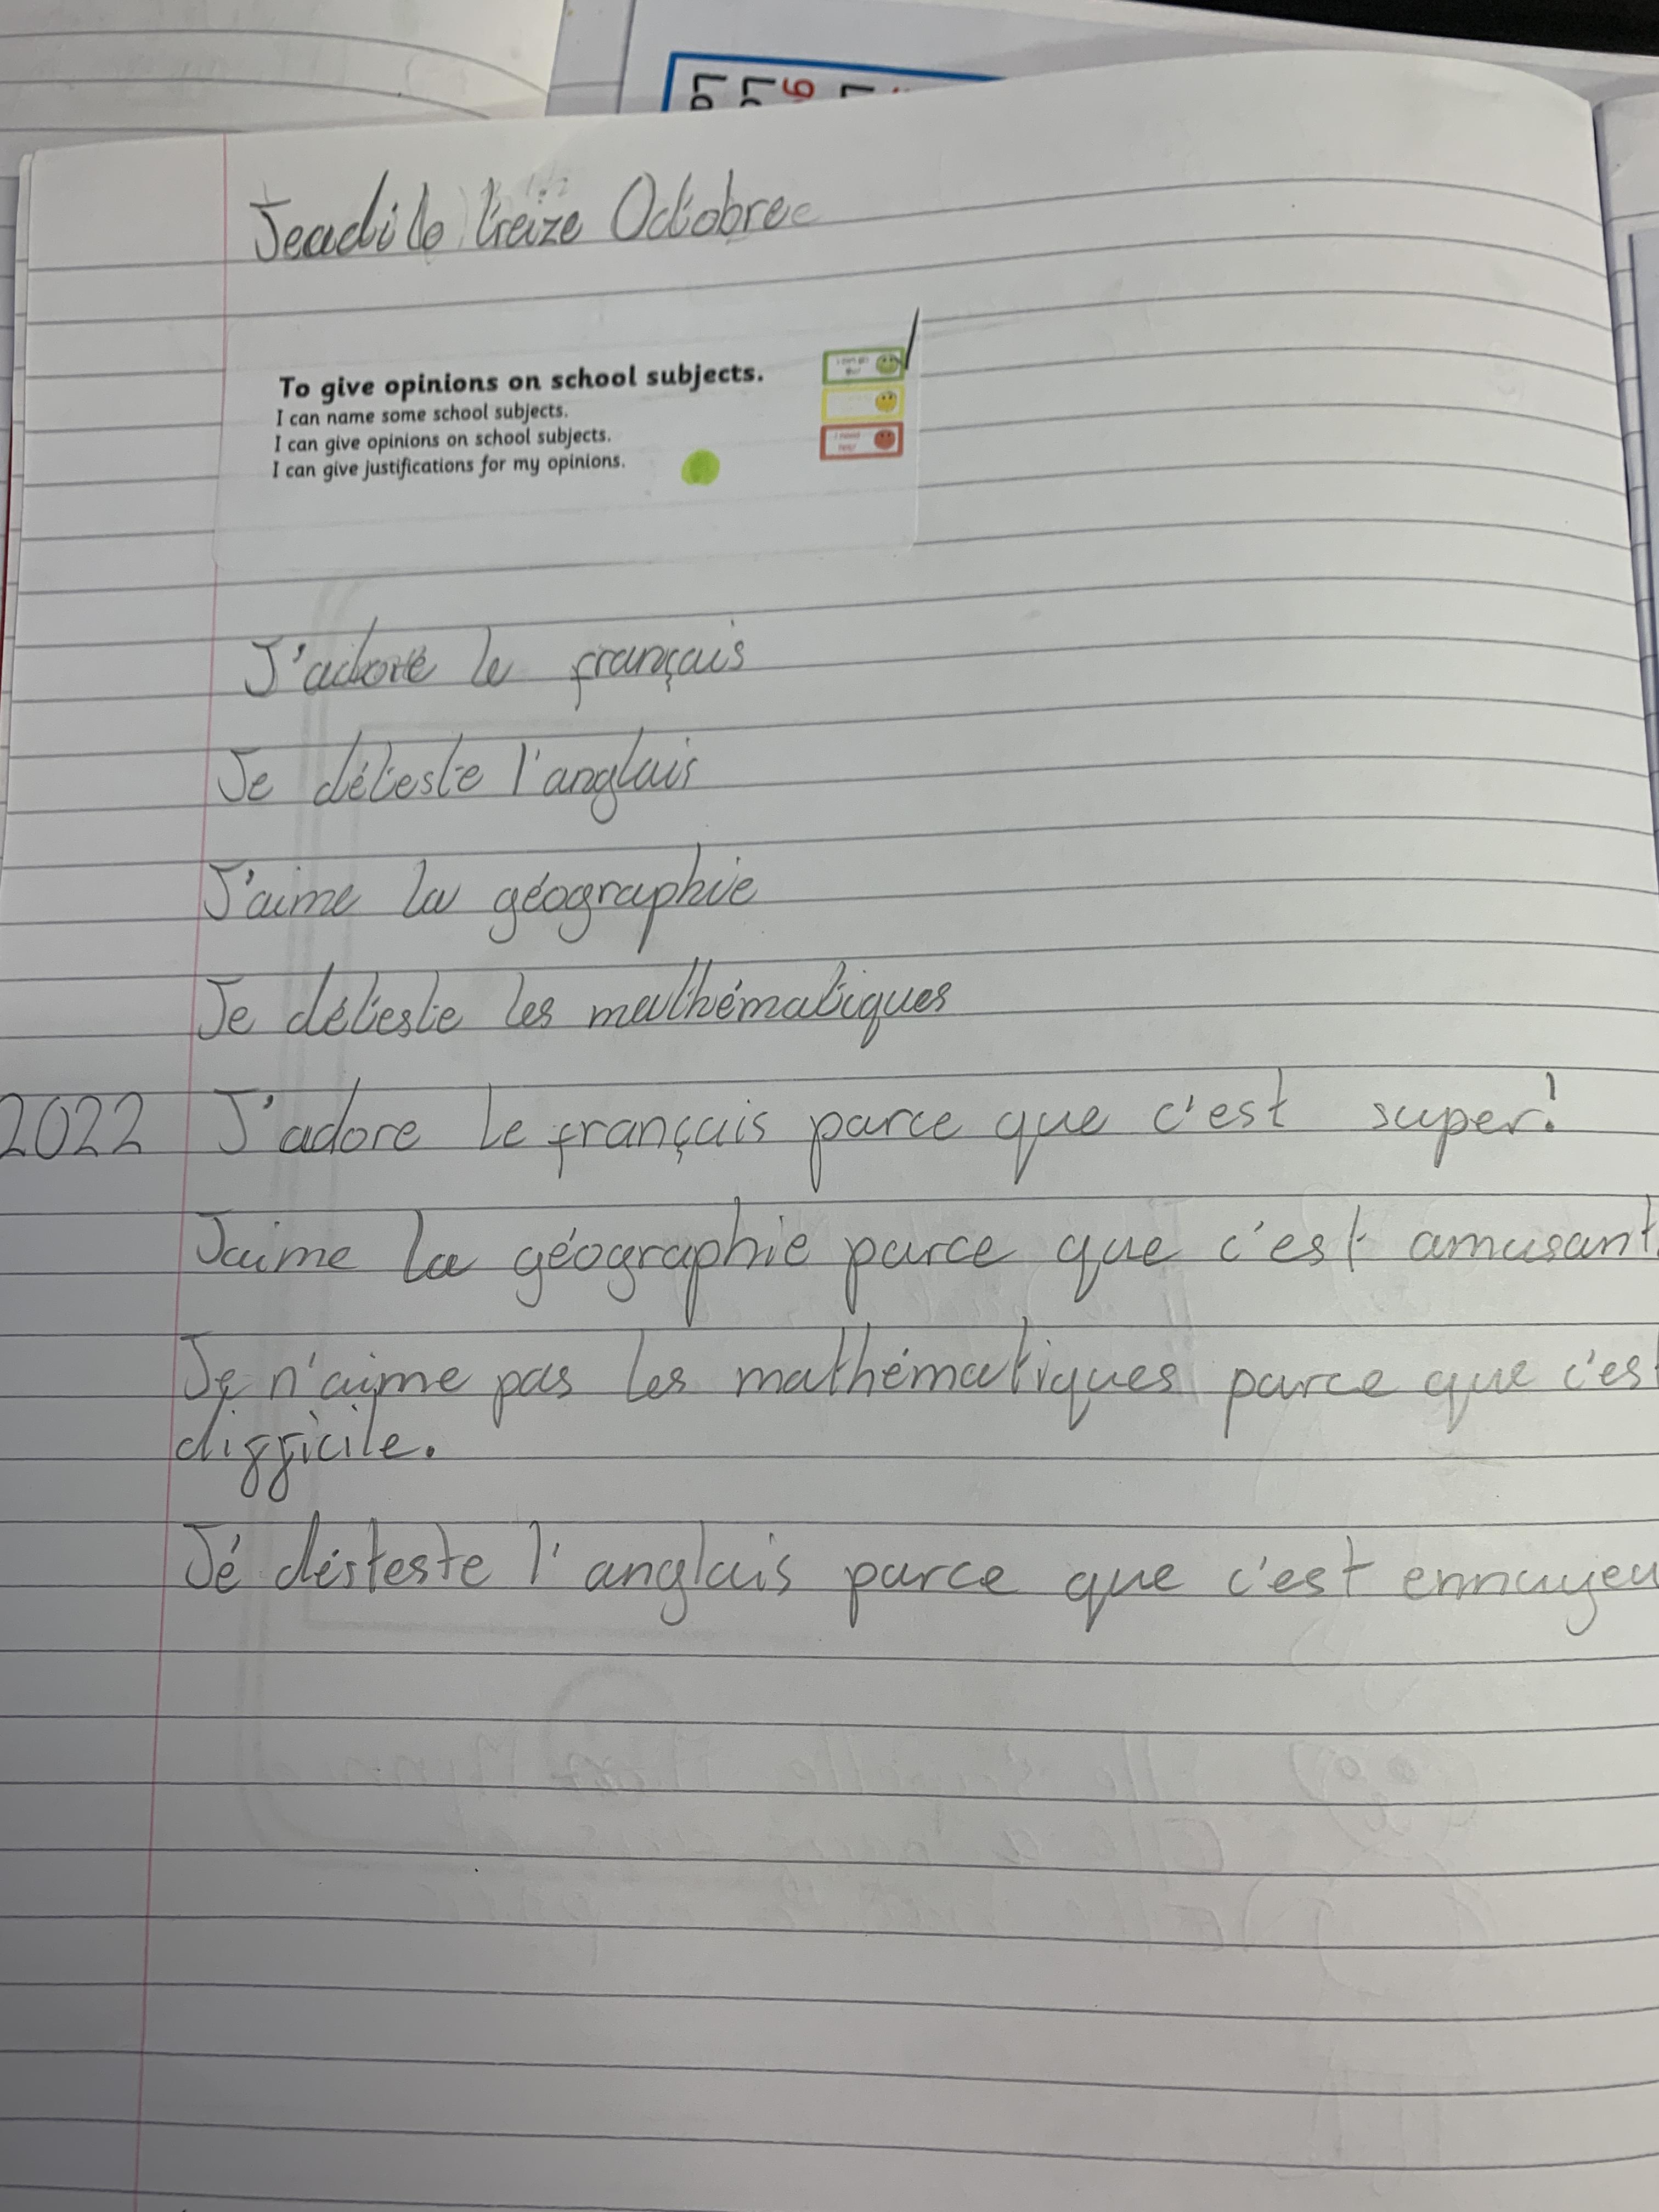 Jeudi le treize Octobre
To give opinions on school subjects.
I can name some school subjects.
I can give opinions on school subjects.
I can give justifications for my opinions.
J'adore le français
Je déteste l'anglais
J'aime la géographie
Je déteste les mathématiques
2022 J'adore le français parce que c'est super!
J'aime la géographie parce que c'est amusant.
Je n'aime pas les mathématiques parce que c'est
difficile.
Jé désteste l'anglais parce que c'est ennuyeu